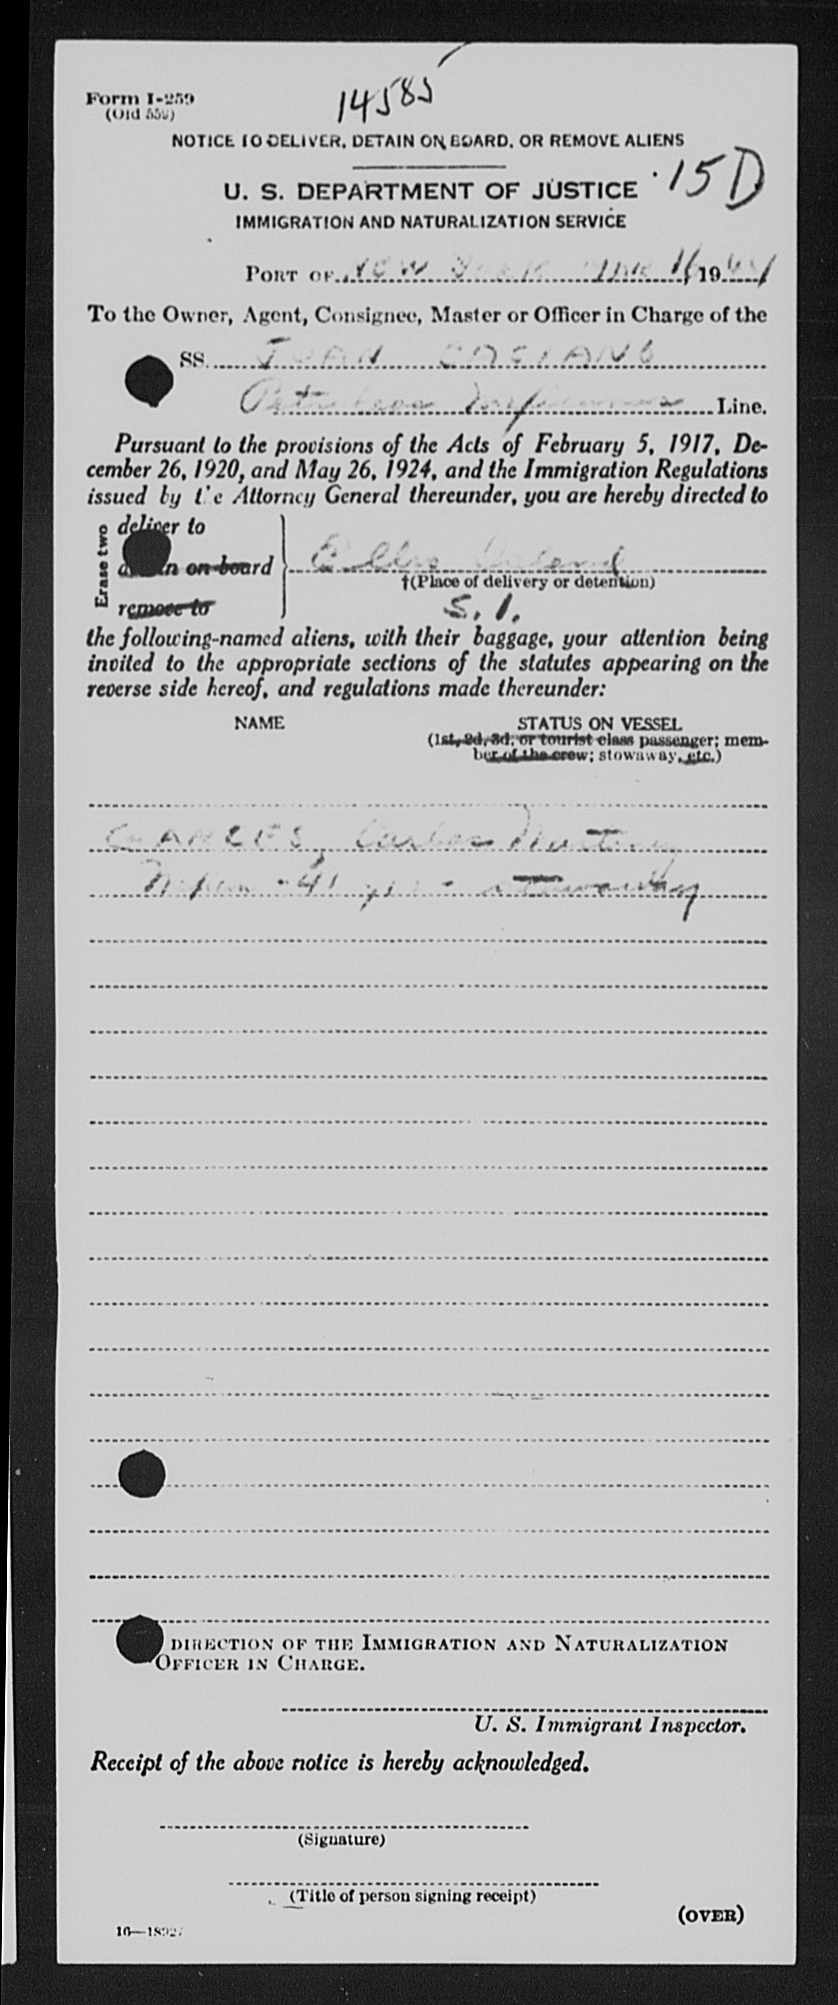 14585
Form I-259
(Old 559)
NOTICE TO DELIVER, DETAIN ON BOARD, OR REMOVE ALIENS
15D
U. S. DEPARTMENT OF JUSTICE
IMMIGRATION AND NATURALIZATION SERVICE
PORT OF New York 16 19
To the Owner, Agent, Consignee, Master or Officer in Charge of the
SS. JUAN CASIANO
Line.
Pursuant to the provisions of the Acts of February 5, 1917, De-
cember 26, 1920, and May 26, 1924, and the Immigration Regulations
issued by the Attorney General thereunder, you are hereby directed to
Erase two
deliver to
on board
Ellis Island
†(Place of delivery or detention)
remove to
S. I.
the following-named aliens, with their baggage, your attention being
invited to the appropriate sections of the statutes appearing on the
reverse side hereof, and regulations made thereunder:
NAME STATUS ON VESSEL
(1st, 2d, 3d, or tourist class passenger; mem-
ber of the crew; stowaway, etc.)
Carlos
41 yrs - stowaway
DIRECTION OF THE IMMIGRATION AND NATURALIZATION
OFFICER IN CHARGE.
U. S. Immigrant Inspector.
Receipt of the above notice is hereby acknowledged.
(Signature)
(Title of person signing receipt)
(OVER)